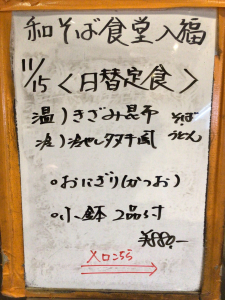 和そば食堂 入福
11/15 <日替定食>
温)きざみ昆布 そば
冷)冷やしタヌキ風 うどん
。おにぎり(かつお)
。小鉢 2品付
¥880.-
入口こちら